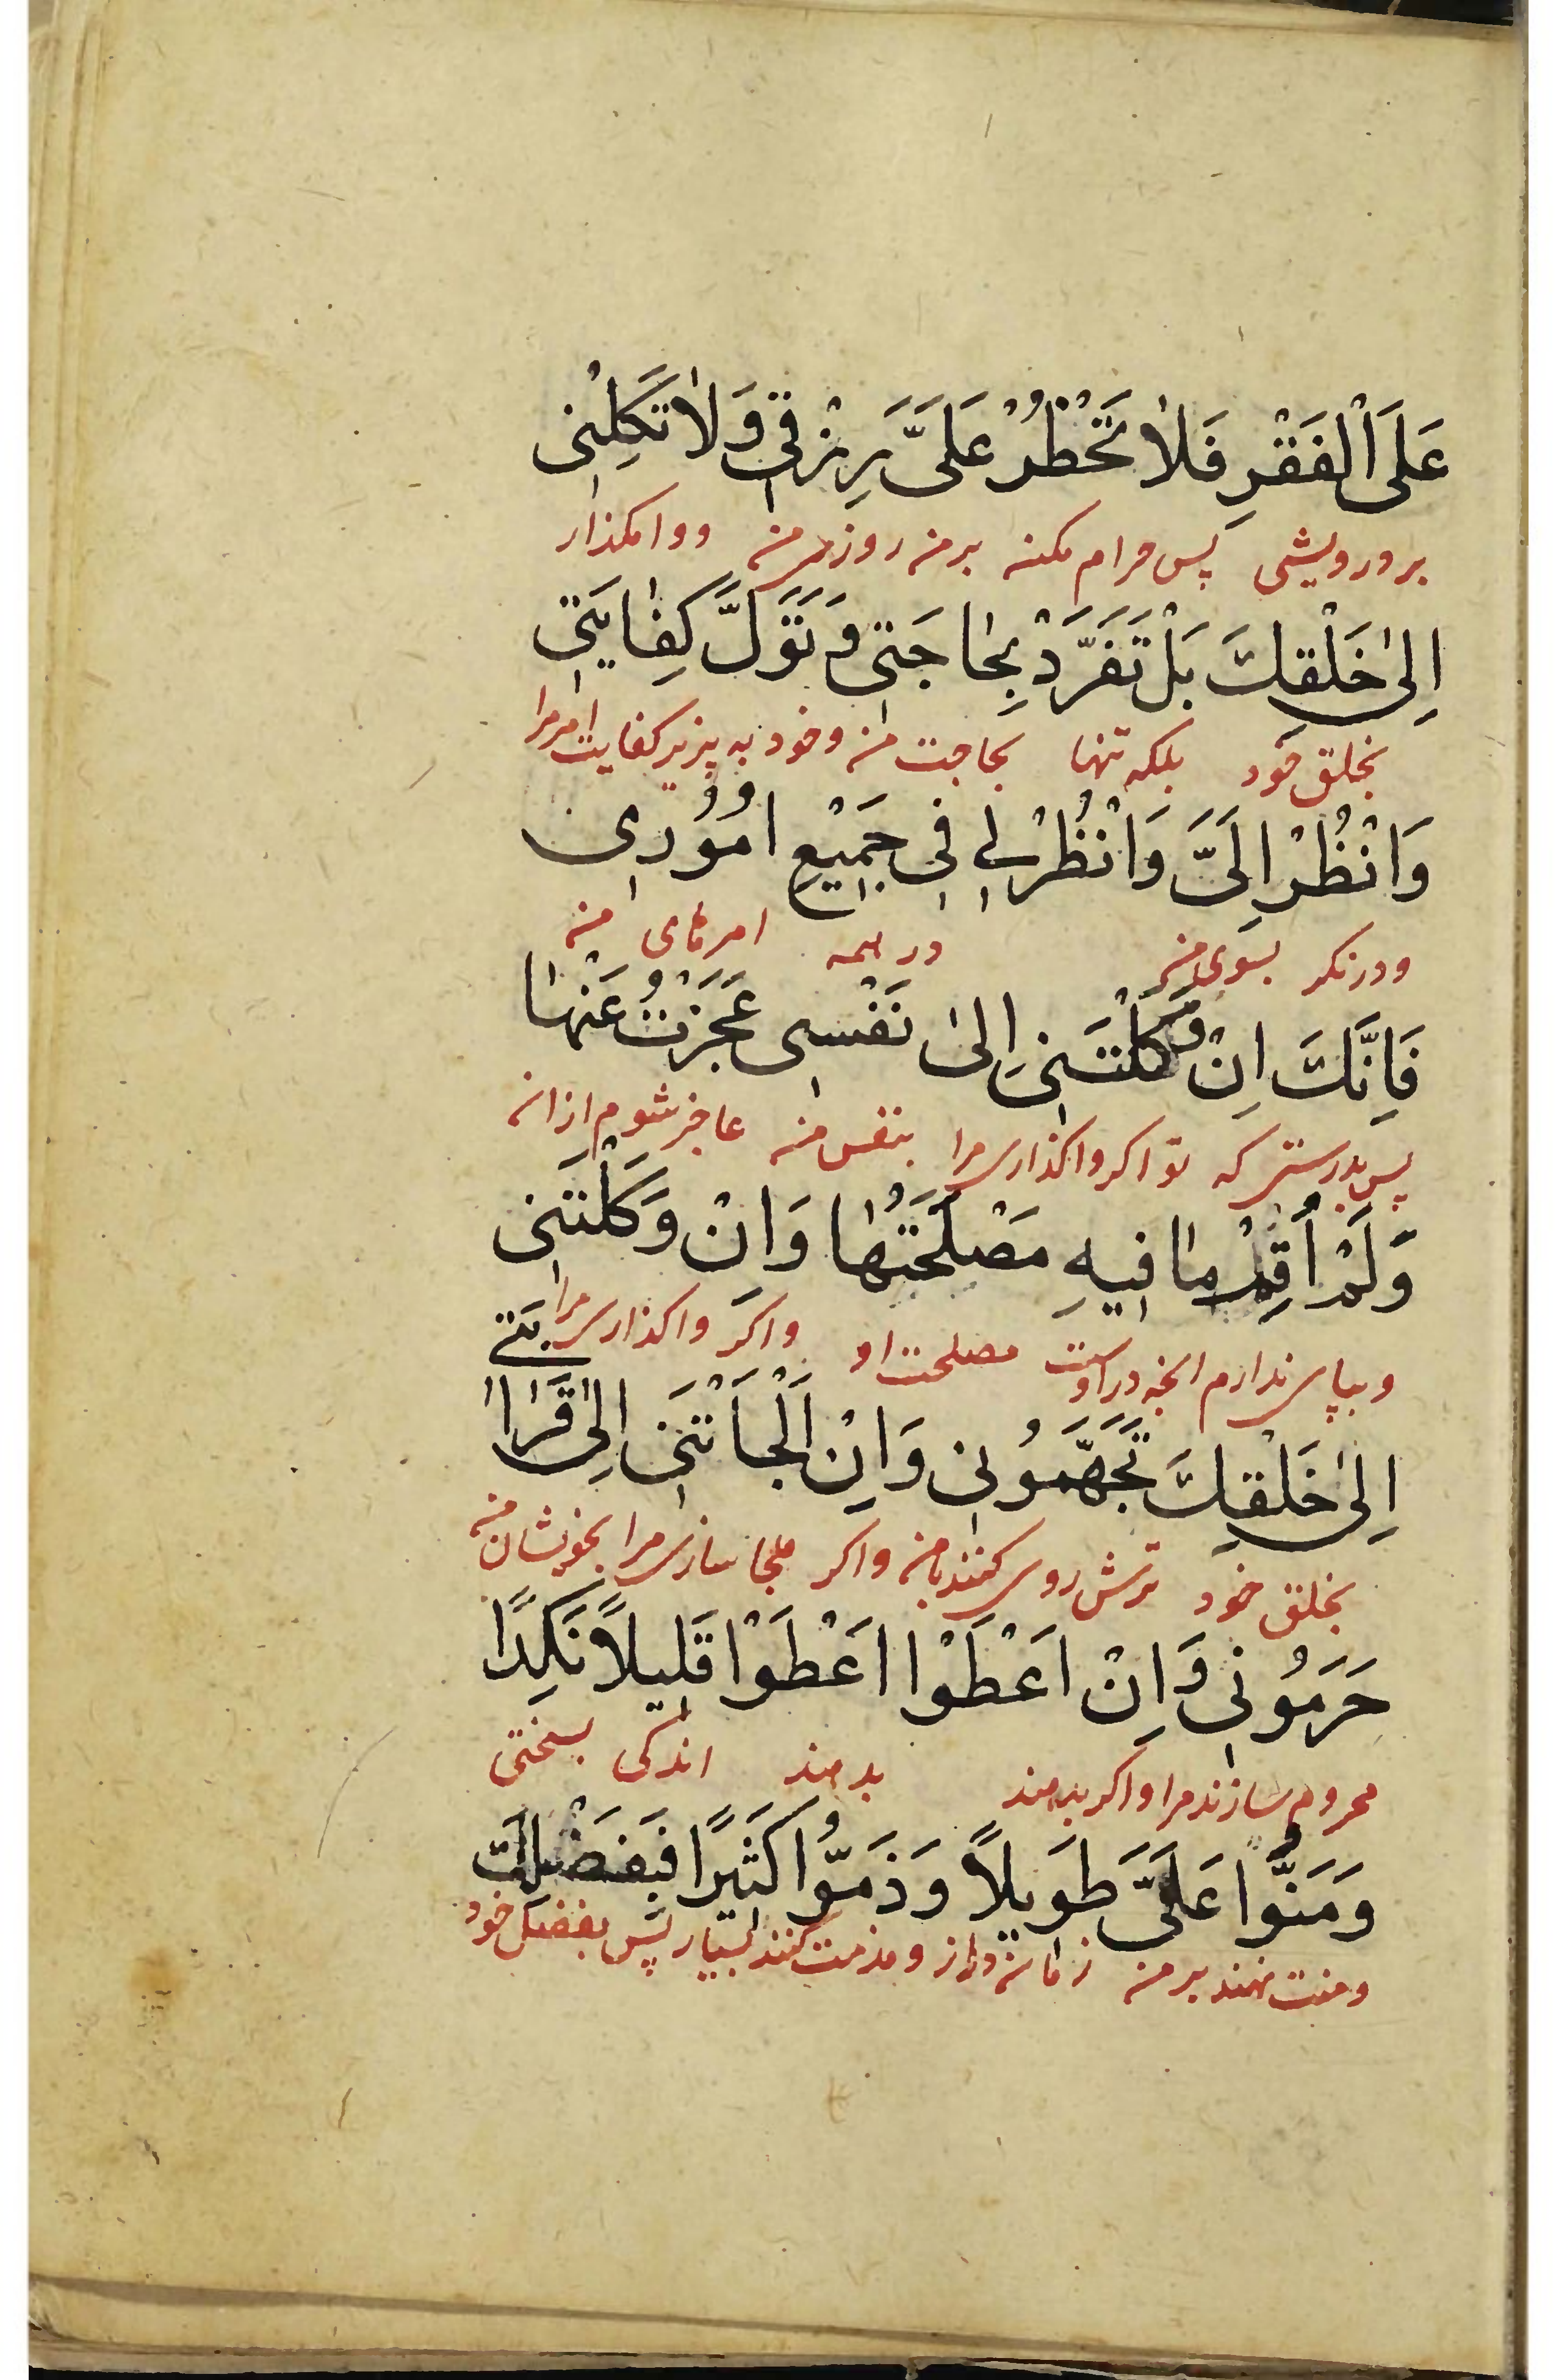 عَلَى الْفَقْرِ فَلَا تَحْظُرْ عَلَيَّ رِزْقِي وَلَا تَكِلْنِي
بر درویشی پس حرام مکن بر من روزی من و وامکذار
اِلىٰ خَلْقِكَ بَلْ تَفَرَّدْ بِحَاجَتِي وَ تَوَلَّ كِفَايَتِي
بخلق خود بلکه تنها بحاجت من و خود به پذیر کفایت امر مرا
وَانْظُرْ اِلَيَّ وَانْظُرْ لِي فِي جَمِيْعِ اُمُوْرِي
و در نکر بسوی من در همه امرهای من
فَاِنَّكَ اِنْ وَكَلْتَنِي اِلىٰ نَفْسِي عَجَزْتُ عَنْهَا
پس بدرستی که تو اکر واکذاری مرا بنفس من عاجز شوم از ان
وَلَمْ اُقِمْ مَا فِيهِ مَصْلَحَتُهَا وَانْ وَكَلْتَنِي
و بپای ندارم انچه در اوست مصلحت او و اکر واکذاری مرا
اِلىٰ خَلْقِكَ تَجَهَّمُونِي وَاِنْ اَلْجَأْتَنِي اِلىٰ قَرَابَتِي
بخلق خود ترش روی کنند با من و اکر ملجا سازی مرا بخویشان من
حَرَمُونِي وَاِنْ اَعْطَوْا اَعْطَوْا قَلِيلاً نَكِدًا
محروم سازند مرا و اکر بدهند بدهند اندکی بسختی
وَمَنُّوا عَلَيَّ طَوِيلاً وَذَمُّوا كَثِيرًا فَبِفَضْلِكَ
و منت نهند بر من زمان دراز و مذمت کنند بسیار پس بفضل خود